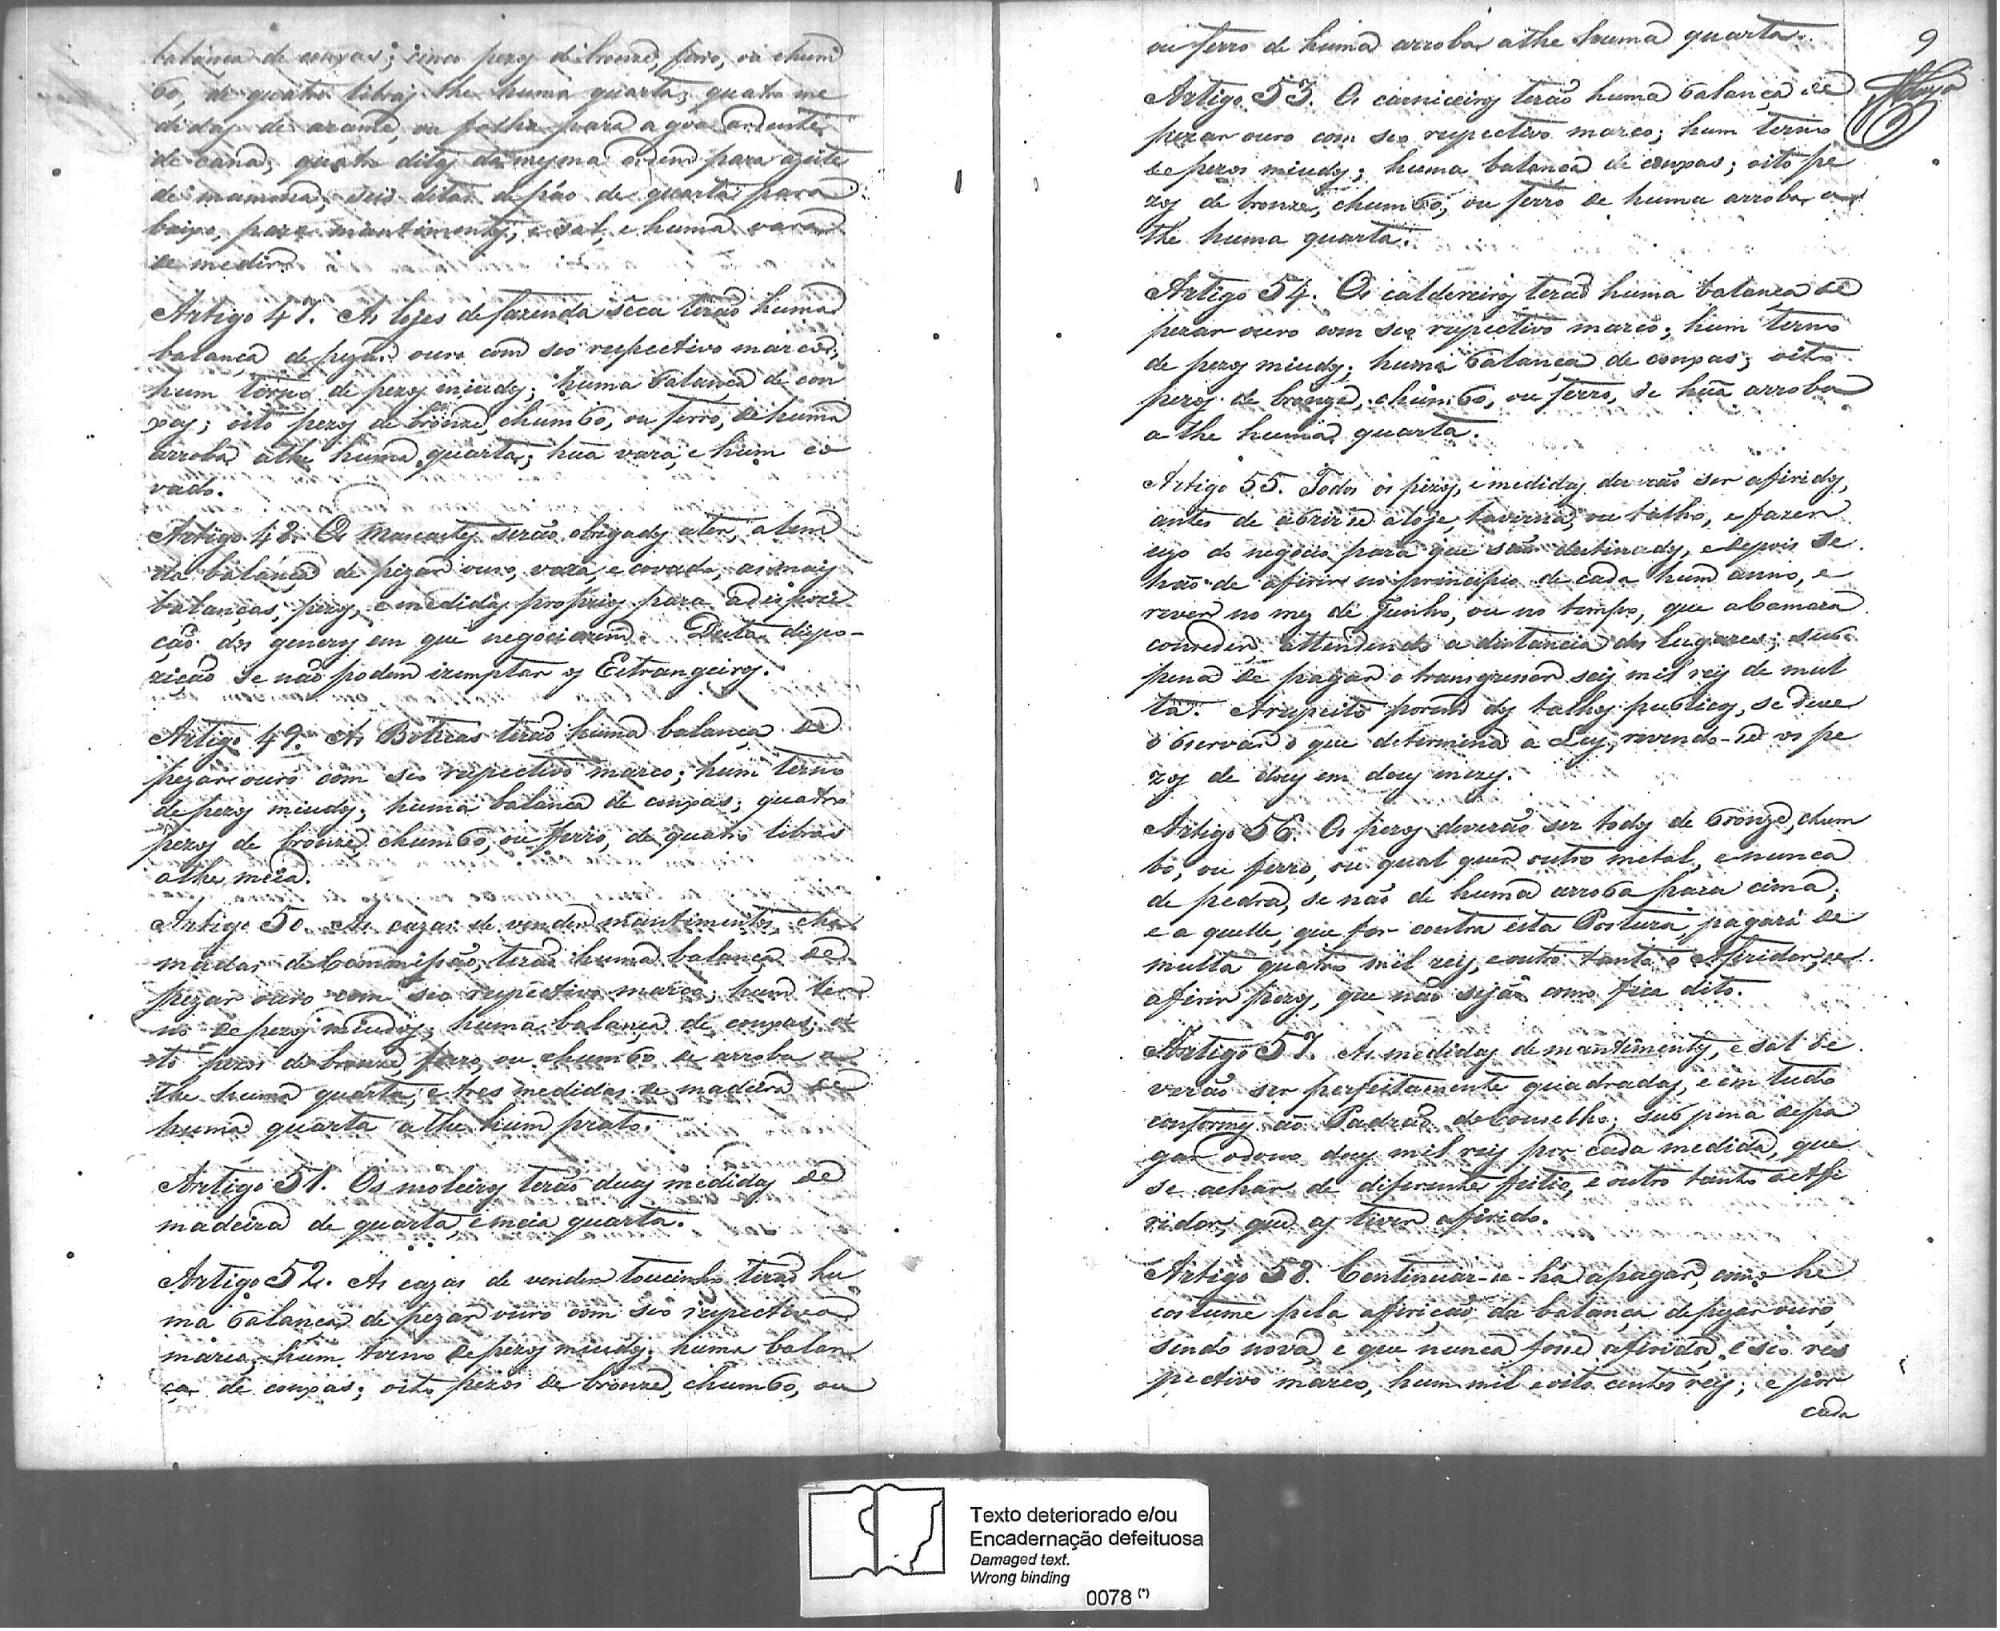 balança de conxas; cinco pezos de bronze, ferro, ou chum
bo, de quatro libras the huma quarta; quatro me
didas de arame, ou folha para agoa ardente
de cana; quatro ditas da mesma ordem para azeite
de mamona; seis ditas de páo de quarta para
baixo, para mantimentos, e sal, e huma vara
de medir.
Artigo 47. As lojes de fazenda sêca terão huma
balança de pezar ouro com seo respectivo marco;
hum terno de pezos miudos; huma balança de con
xas; oito pezos de bronze, chumbo, ou ferro, de huma
arroba athe huma quarta; hũa vara, e hum co
vado.
Artigo 48. Os Mascastes serão obrigados a ter, alem
da balança de pezar ouro, vara, e covado, as mais
balanças, pezos, e medidas proprias para a dispozi
ção dos generos em que negociarem. Desta dispo-
zição se não podem izemptar os Estrangeiros.
Artigo 49. As Boticas terão huma balança de
pezar ouro com seo respectivo marco; hum terno
de pezos miudos; huma balança de conxas; quatro
pezos de bronze, chumbo, ou ferro, de quatro libras
athe meia.
Artigo 50. As cazas de vender mantimentos, cha
madas de Commissão, terão huma balança de
pezar ouro com seo respectivo marco; hum ter
no de pezos miudos; huma balança de conxas; oi
to pezos de bronze, ferro, ou chumbo de arroba a
the huma quarta; e tres medidas de madeira de
huma quarta athe hum prato.
Artigo 51. Os moleiros terão duas medidas de
madeira de quarta, e meia quarta.
Artigo 52. As cazas de vender toucinho terão hu
ma balança de pezar ouro com seo respectivo
marco; hum terno de pezos miudos; huma balan
ça de conxas; oito pezos de bronze, chumbo, ou
9
ou ferro de huma arroba athe huma quarta.
Artigo 53. Os carniceiros terão huma balança de
pezar ouro com seo respectivo marco; hum terno
de pezos miudos; huma balança de conxas; oito pe
zos de bronze, chumbo, ou ferro de huma arroba a
the huma quarta.
Artigo 54. Os caldereiros terão huma balança de
pezar ouro com seo respectivo marco; hum terno
de pezos miudos; huma balança de conxas; oito
pezos de bronze, chumbo, ou ferro, de hũa arroba
athe huma quarta.
Artigo 55. Todos os pezos, e medidas deverão ser afiridos,
antes de abrirse a loje, taverna, ou talho, e fazer
uzo do negocio para que são destinados, e depois se
hão de afirir no principio de cada hum anno, e
rever no mez de Junho, ou no tempo, que a Camara
conceder attendendo a distancia dos lugares; sub
pena de pagar o transgressor seis mil reis de mul
ta. A respeito porem dos talhos publicos, se deve
observar o que determina a Ley, revendo-se os pe
zos de dous em dous mezes.
Artigo 56. Os pezos deverão ser todos de bronze, chum
bo, ou ferro, ou qual quer outro metal, e nunca
de pedra, se não de huma arroba para cima;
e a quelle, que for contra esta Postura, pagará de
multa quatro mil reis, e outro tanto o Afiridor, se
afirir pezos, que não sejão como fica dito.
Artigo 57. As medidas de mantimentos, e sal de
verão ser perfeitamente quadradas, e em tudo
conformes ao Padrão do Conselho; sub pena de pa
gar o dono dous mil reis por cada medida, que
se achar de diferente feitio, e outro tanto o Afi
ridor, que as tiver afirido.
Artigo 58. Continuar-se-ha a pagar, como he
costume pela afirição da balança de pezar ouro,
sendo nova, e que nunca fosse afirida, e seo res
pectivo marco, hum mil e oito centos reis; e por
cada
Texto deteriorado e/ou
Encadernação defeituosa
Damaged text.
Wrong binding
0078 (*)